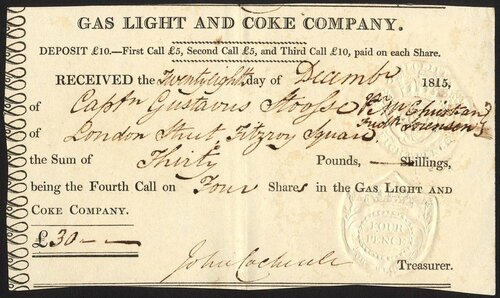 GAS LIGHT AND COKE COMPANY.
DEPOSIT £10.—First Call £5, Second Call £5, and Third Call £10, paid on each Share.
RECEIVED the Twentyeight day of December 1815,
of Captn Gustavus
of London Street Fitzroy Square Fredk Sorensen
the Sum of Thirty Pounds, — Shillings,
being the Fourth Call on Four Shares in the GAS LIGHT AND
COKE COMPANY.
£30 — —
John Treasurer.
FOUR
PENCE